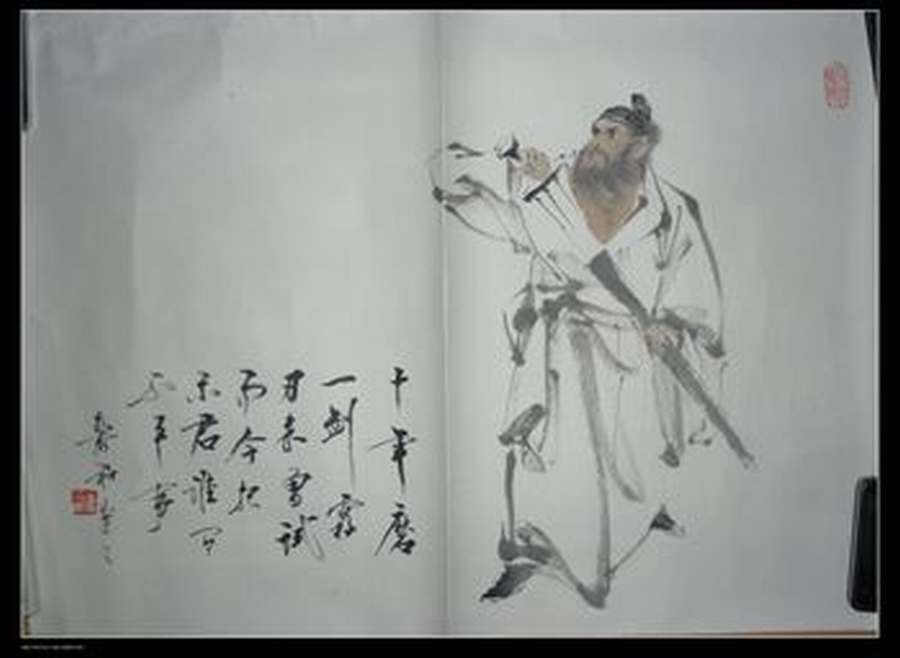 十年磨
一剑霜
刃未曾试
而今把
示君谁
不平事